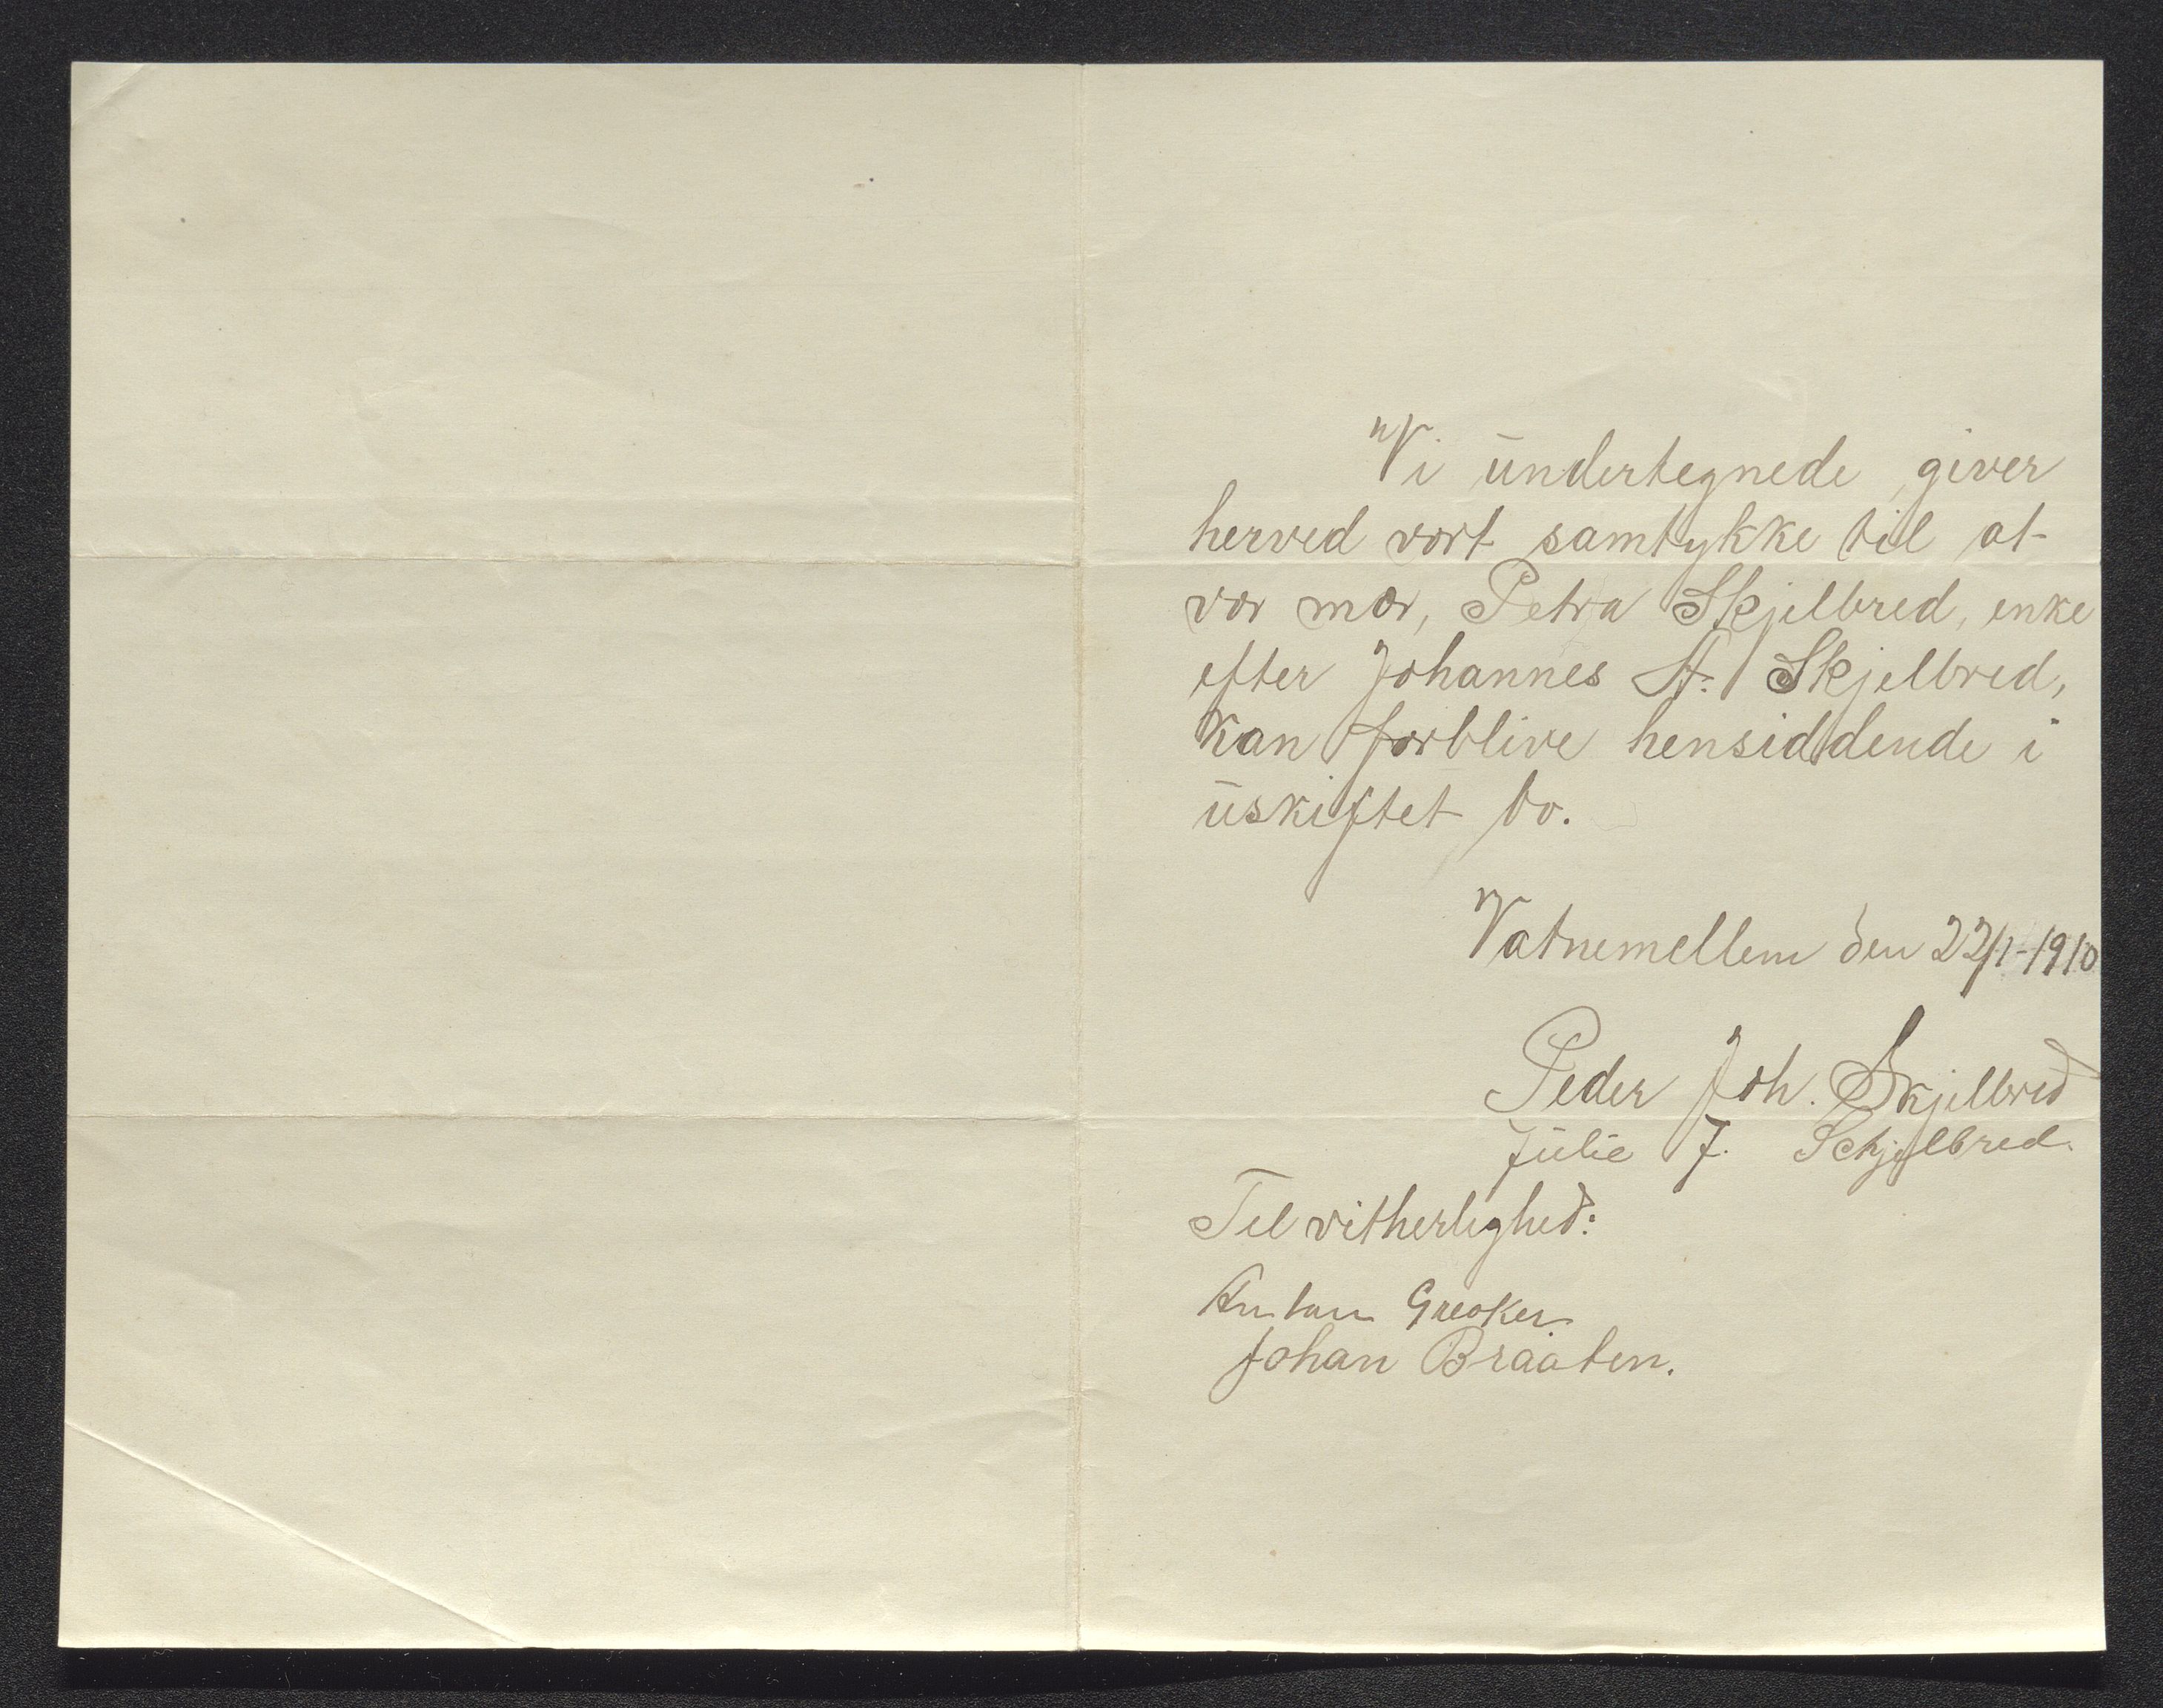 Vi undertegnede giver
herved vort samtykke til at
vor mor, Petra Skjelbred, enke
efter Johannes A. Skjelbred,
kan forblive hensiddende i
uskiftet bo.
Vatnemellem den 22/1-1910
Peder Joh. Skjelbred
Julie J. Schjelbred.
Til vitherlighed:
Johan Braaten.